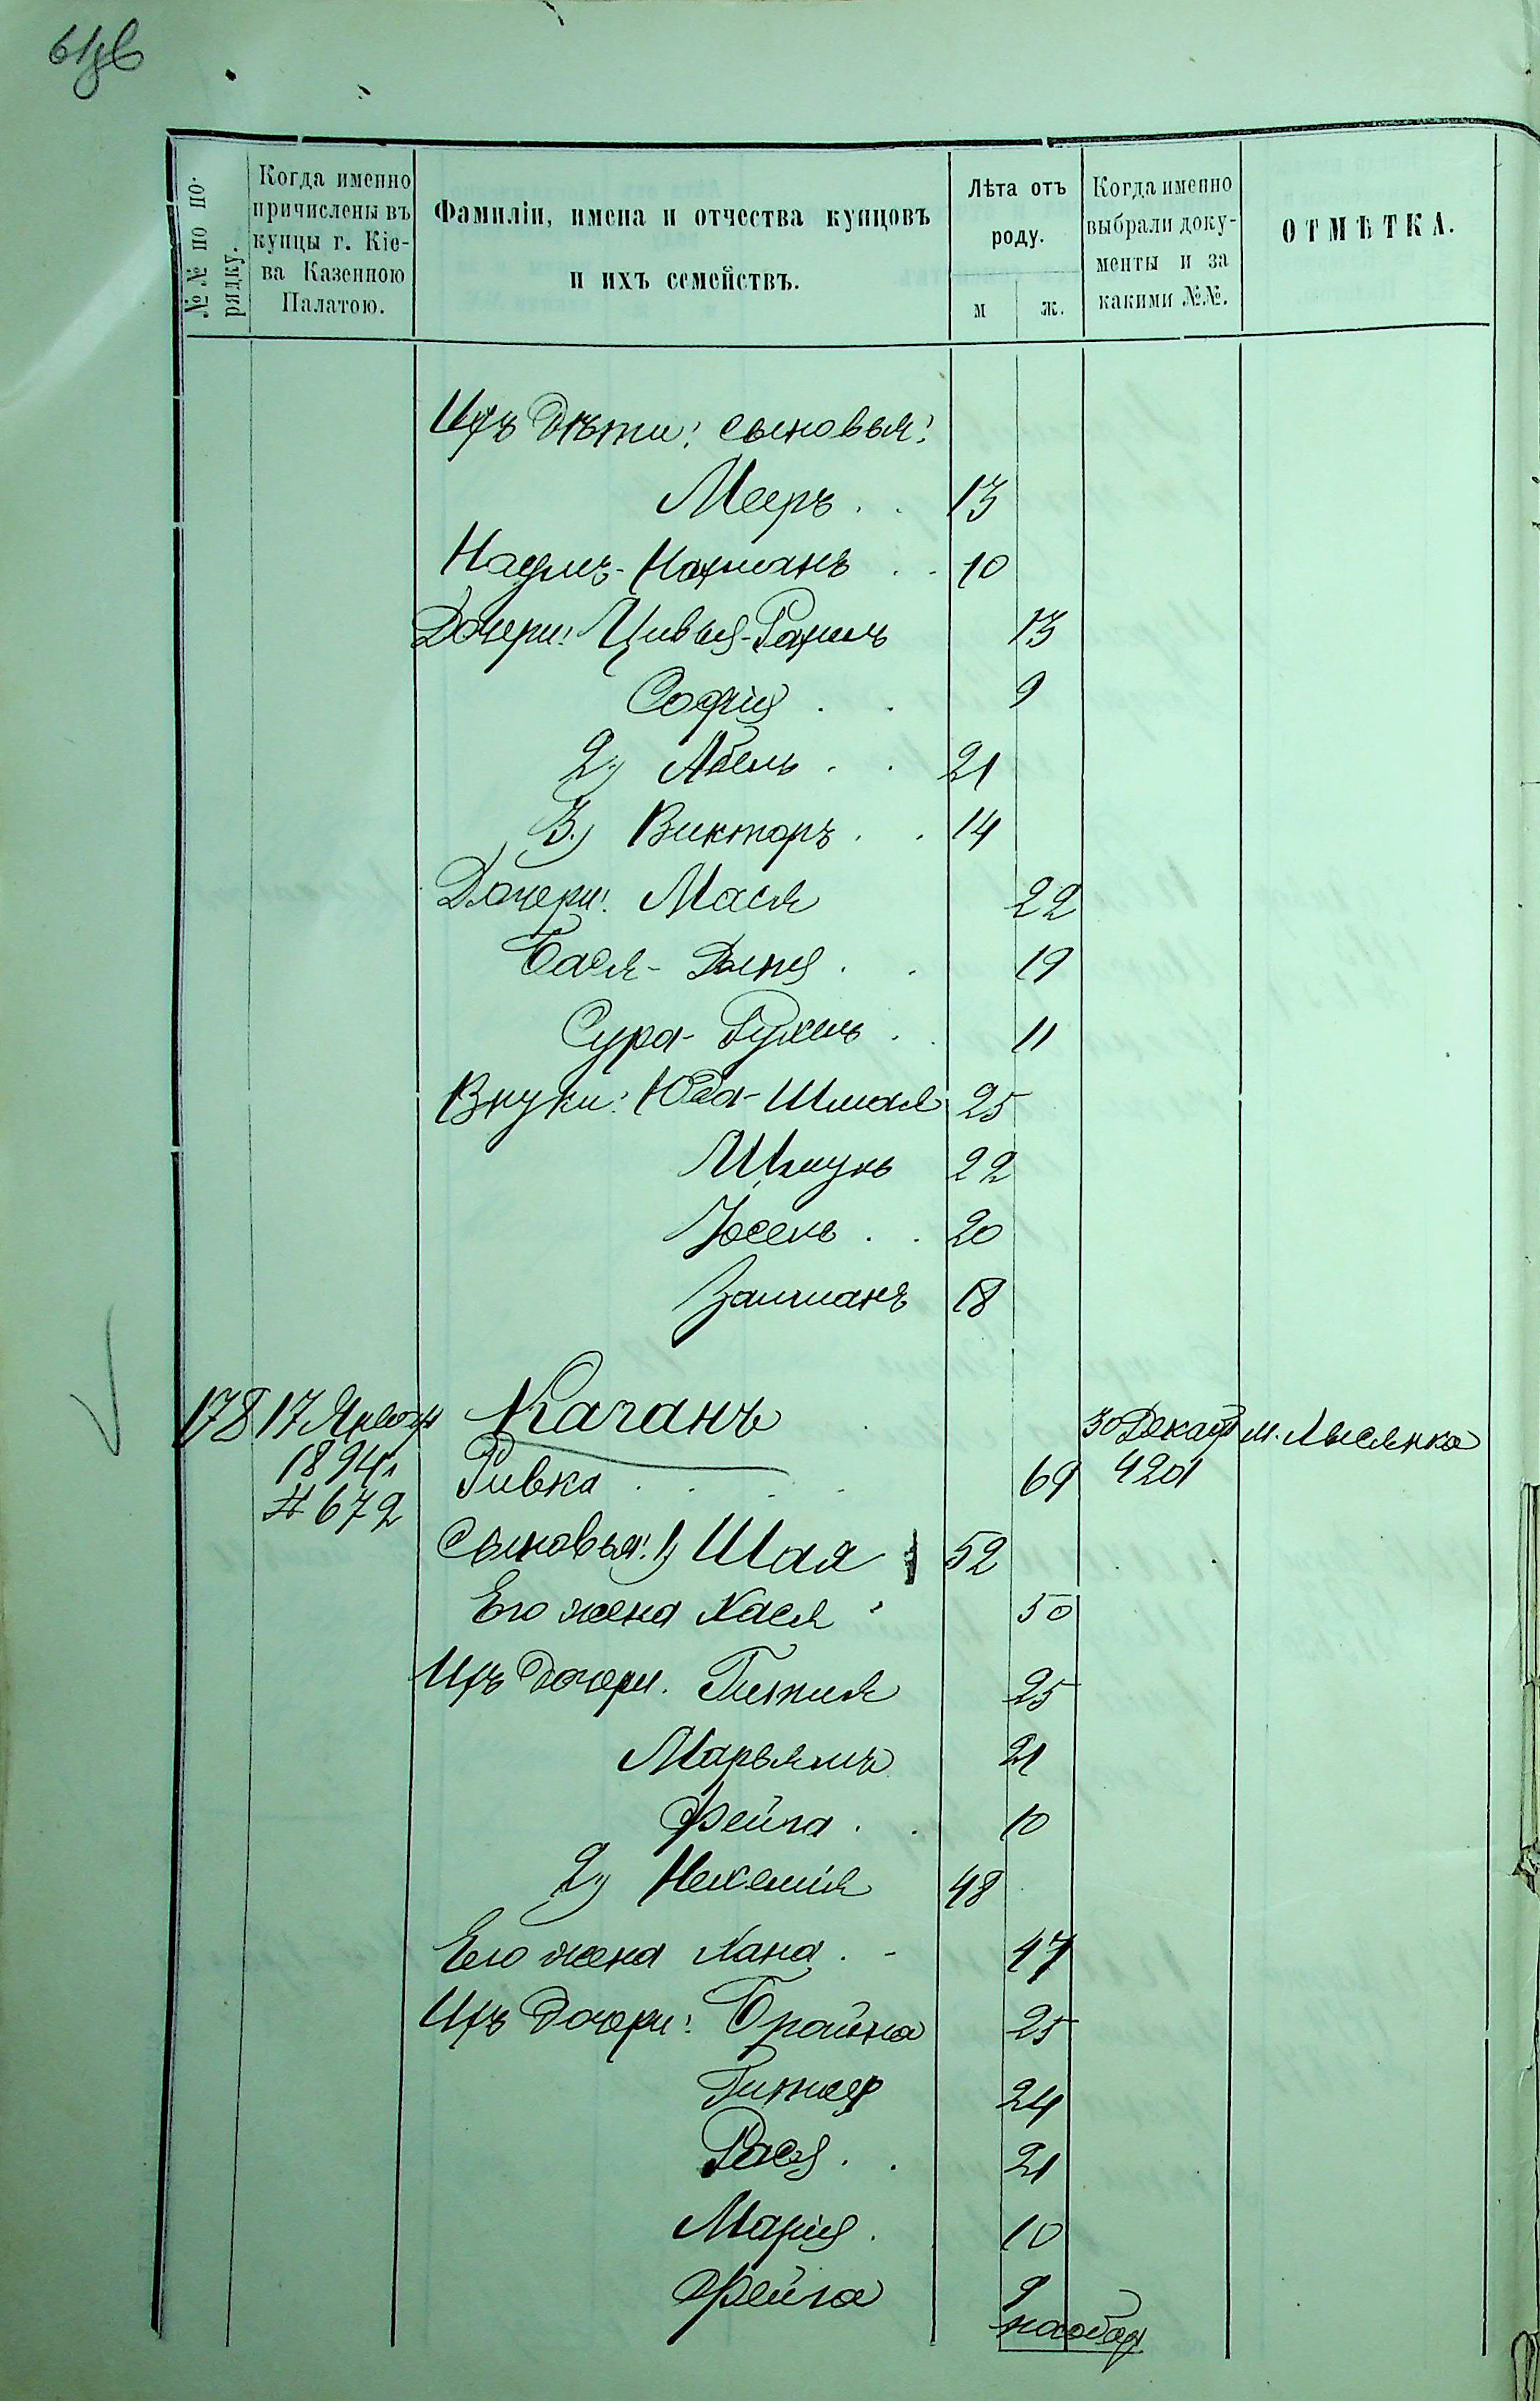 №№ по по-
рядку.
Когда именно
причислены въ
купцы г. Кіе-
ва Казенною
Палатою.
Фамиліи, имена и отчества купцовъ
и ихъ семействъ.
Лѣта отъ
роду.
м ж.
Когда именно
выбрали доку-
менты и за
какими №№.
ОТМѢТКА.
Ихъ дѣти: сыновья:
Мееръ . . 13
Наумъ-Нахманъ . . 10
Дочери: Цивья-Рахиль 13
Софія . . 9
2) Абель . . 21
3) Викторъ . . 14
Дочери: Мася 22
Бася- Дыня . . 19
Сура-Рухель . . 11
Внуки: Юда-Шмая 25
Шмуль 22
Іосель . . 20
Залманъ 18
178 17 Января Качанъ 30 Декаб м. Лысянка
1894 г. Ривка . . . . 69 4201
# 672
Сыновья: 1) Шая 52
Его жена Хася 50
Ихъ дочери. Гитля 25
Марьямъ 21
Фейга . . 10
2) Нехемія 48
Его жена Хана . - 47
Ихъ дочери: Брайна 25
Гитля 24
Рася . . 21
Марія . 10
Фейга 9
наобор